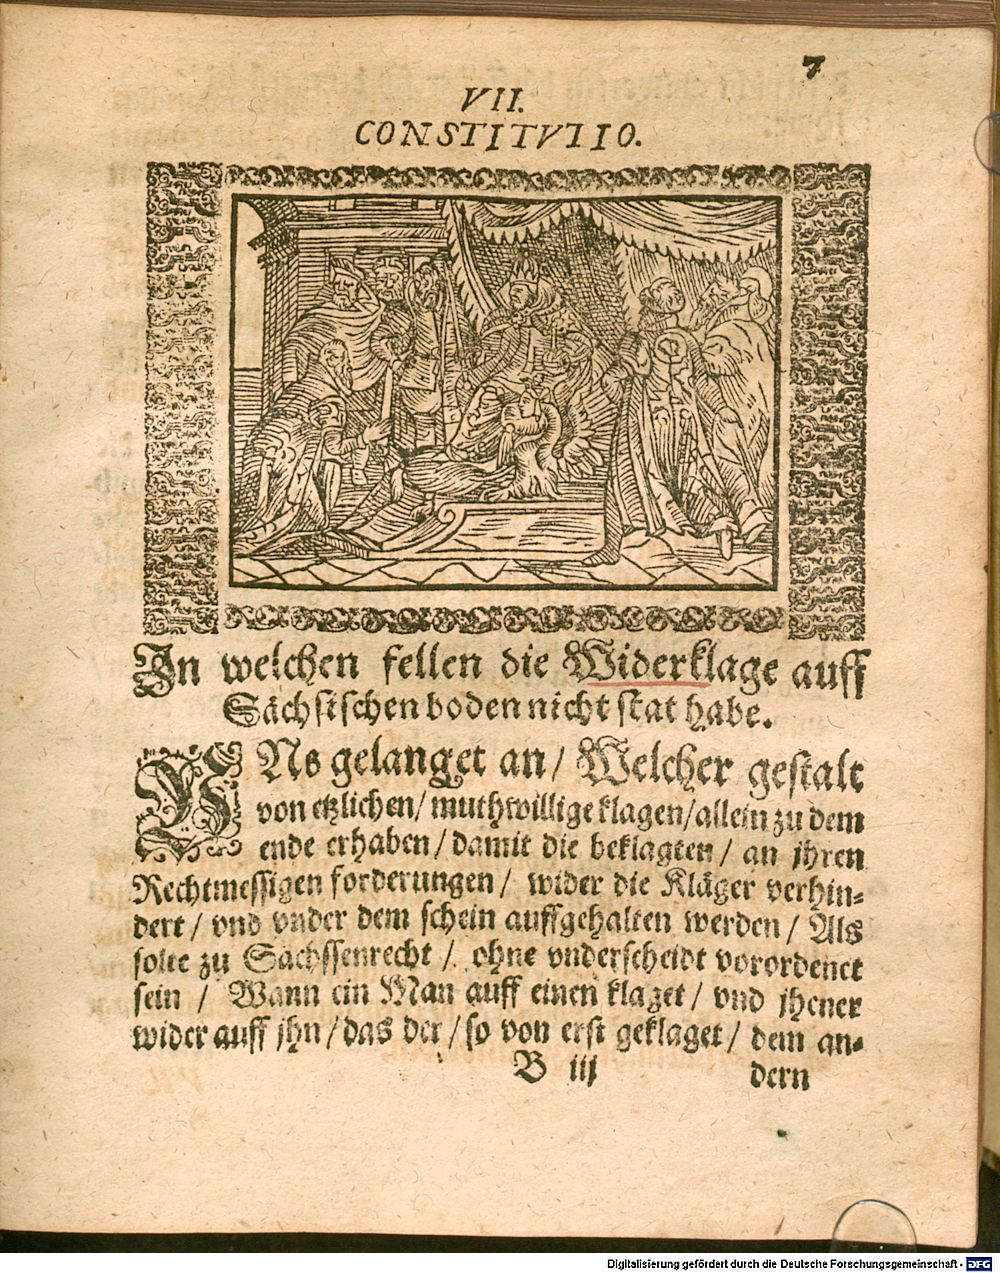 7
VII.
CONSTITVTIO.
In welchen fellen die Widerklage auff
Sächsischen boden nicht stat habe.
UNs gelanget an / Welcher gestalt
von etzlichen / muthwillige klagen / allein zu dem
ende erhaben / damit die beklagten / an jhren
Rechtmessigen forderungen / wider die Kläger verhin-
dert / vnd vnder dem schein auffgehalten werden / Als
solte zu Sachssenrecht / ohne vnderscheidt vorordenet
sein / Wann ein Man auff einen klaget / vnd jhener
wider auff jhn / das der / so von erst geklaget / dem an-
B iij dern
Digitalisierung gefördert durch die Deutsche Forschungsgemeinschaft - DFG